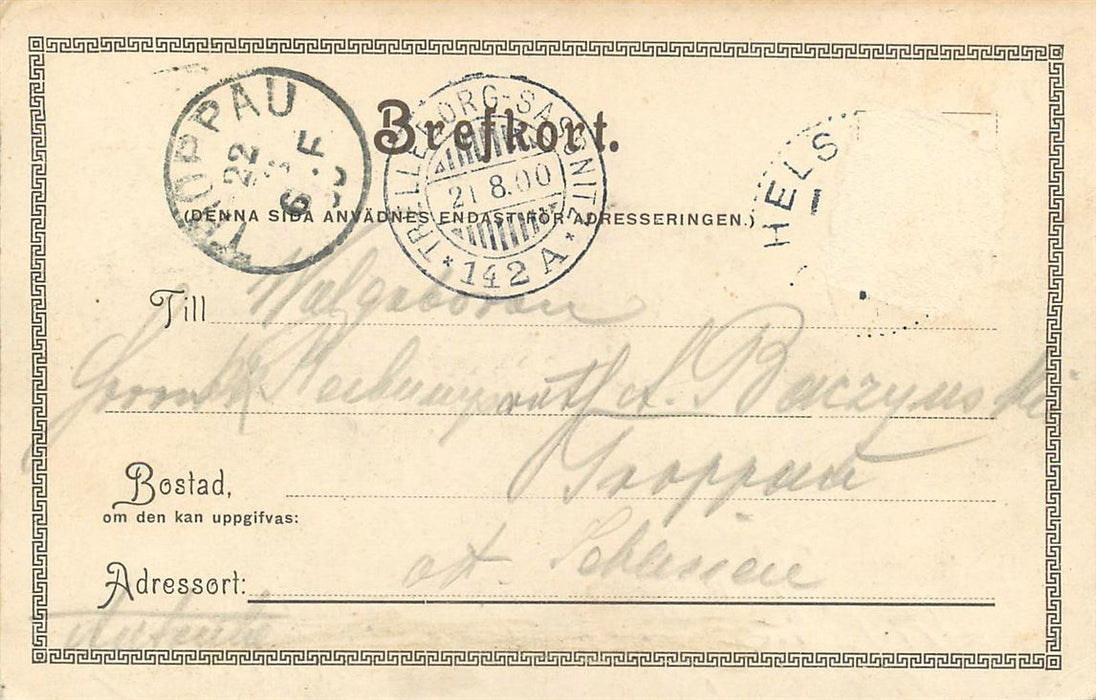 TROPPAU
22
6 F
Brefkort.
TRELLEBORG-SASSNITZ
21 8.00
* 142 A *
HELS
(DENNA SIDA ANVÄDNES ENDAST FÖR ADRESSERINGEN.)
Till
Baczynski
Bostad,
Troppau
om den kan uppgifvas:
Adressort:
öst. Schlesien